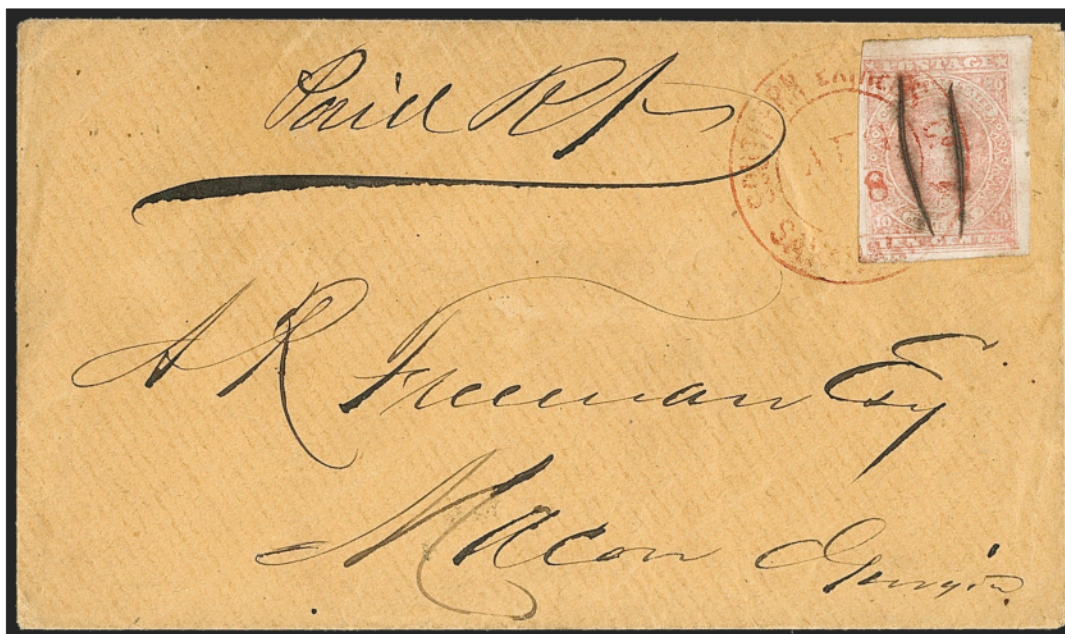 Paid
SOUTHERN EXPRESS CO.
8
POSTAGE
TEN CENTS
A R Freeman Esq
Macon Georgia